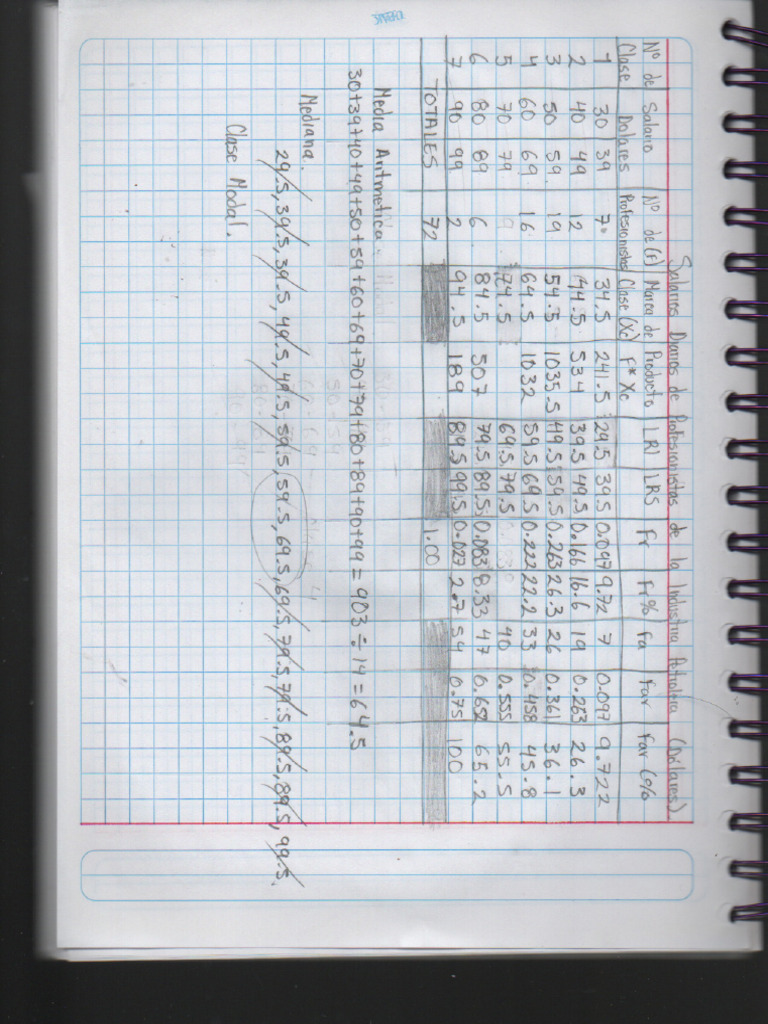 Salarios Diarios de Profesionistas de la Industria Petrolera (Dólares)
Nº de Clase | Salario Dolares | Nº de (F) Profesionistas | Marca de Clase (Xc) | Producto F*Xc | LRI | LRS | Fr | Fr% | Fa | Far | Far (%
1 30 39 7 34.5 241.5 29.5 39.5 0.097 9.72 7 0.097 9.722
2 40 49 12 44.5 534 39.5 49.5 0.166 16.6 19 0.263 26.3
3 50 59 19 54.5 1035.5 49.5 59.5 0.263 26.3 26 0.361 36.1
4 60 69 16 64.5 1032 59.5 69.5 0.222 22.2 33 0.458 45.8
5 70 79 74.5 69.5 79.5 40 0.555 55.5
6 80 89 6 84.5 507 79.5 89.5 0.083 8.33 47 0.652 65.2
7 90 99 2 94.5 189 89.5 99.5 0.027 2.7 54 0.75 100
TOTALES 72 1.00
Media Aritmetica
30+39+40+49+50+59+60+69+70+79+80+89+90+99= 903 ÷ 14 = 64.5
Mediana.
29.5, 39.5, 39.5, 49.5, 49.5, 59.5, 59.5, 69.5, 69.5, 79.5, 79.5, 89.5, 89.5, 99.5.
Clase Modal.